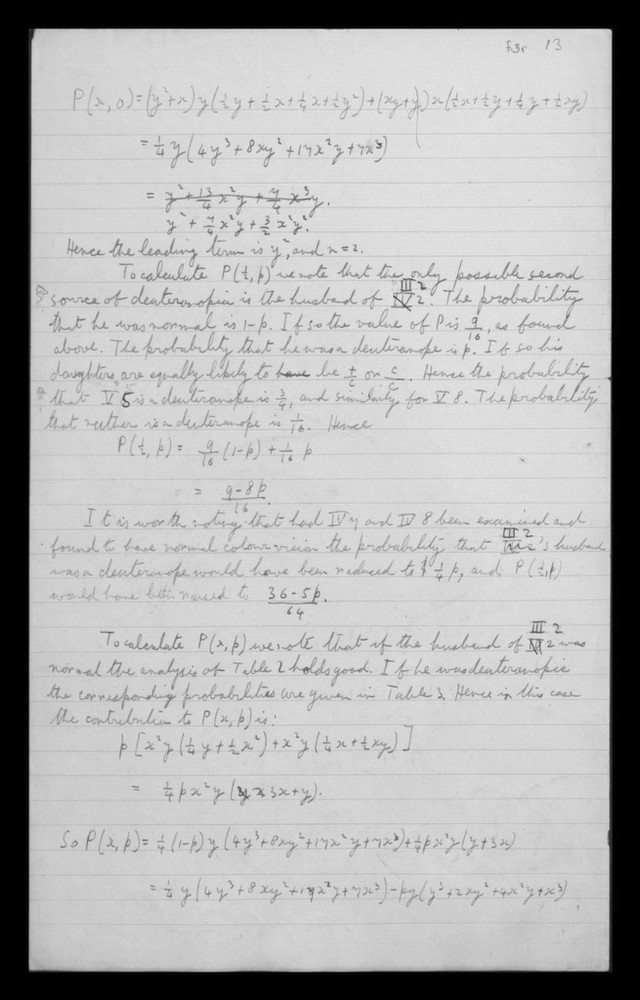 f3r 13
P(x, 0) = (y²+x) y (½y + ½x + ¼x + ½y²) + (xy+y) x (½x + ½y + ¼y + ½xy)
= ¼ y (4y³ + 8xy² + 17x²y + 7x³)
= y² + 13/4 x²y + 7/4 x³y.
y² + 7/4 x²y + 3/2 x²y².
Hence the leading term is y², and n = 2.
To calculate P(½, p) we note that the only possible second
source of deuteranopia is the husband of III 2. The probability
that he was normal is 1-p. If so the value of P is 9/16, as found
above. The probability that he was a deuteranope is p. If so his
daughters are equally likely to have be +/c or c/c. Hence the probability
that V 5 is a deuteranope is ¾, and similarly for V 8. The probability
that neither is a deuteranope is 1/16. Hence
P(½, p) = 9/16 (1-p) + 1/16 p
= 9-8p/16.
It is worth noting that had IV 7 and IV 8 been examined and
found to have normal colour vision the probability that III 2's husband
was a deuteranope would have been reduced to ¼ p, and P(½, p)
would have been raised to 36-5p/64.
To calculate P(x, p) we note that if the husband of III 2 was
normal the analysis of Table 2 holds good. If he was deuteranopic
the corresponding probabilities are given in Table 3. Hence in this case
the contribution to P(x, p) is:
p [x²y (¼y + ½x²) + x²y (¼x + ½xy)]
= ¼ p x² y (3x + y).
So P(x, p) = ¼ (1-p) y (4y³ + 8xy² + 17x²y + 7x³) + ¼ p x² y (y + 3x)
= ¼ y (4y³ + 8xy² + 17x²y + 7x³) - py (y³ + 2xy² + 4x²y + x³)